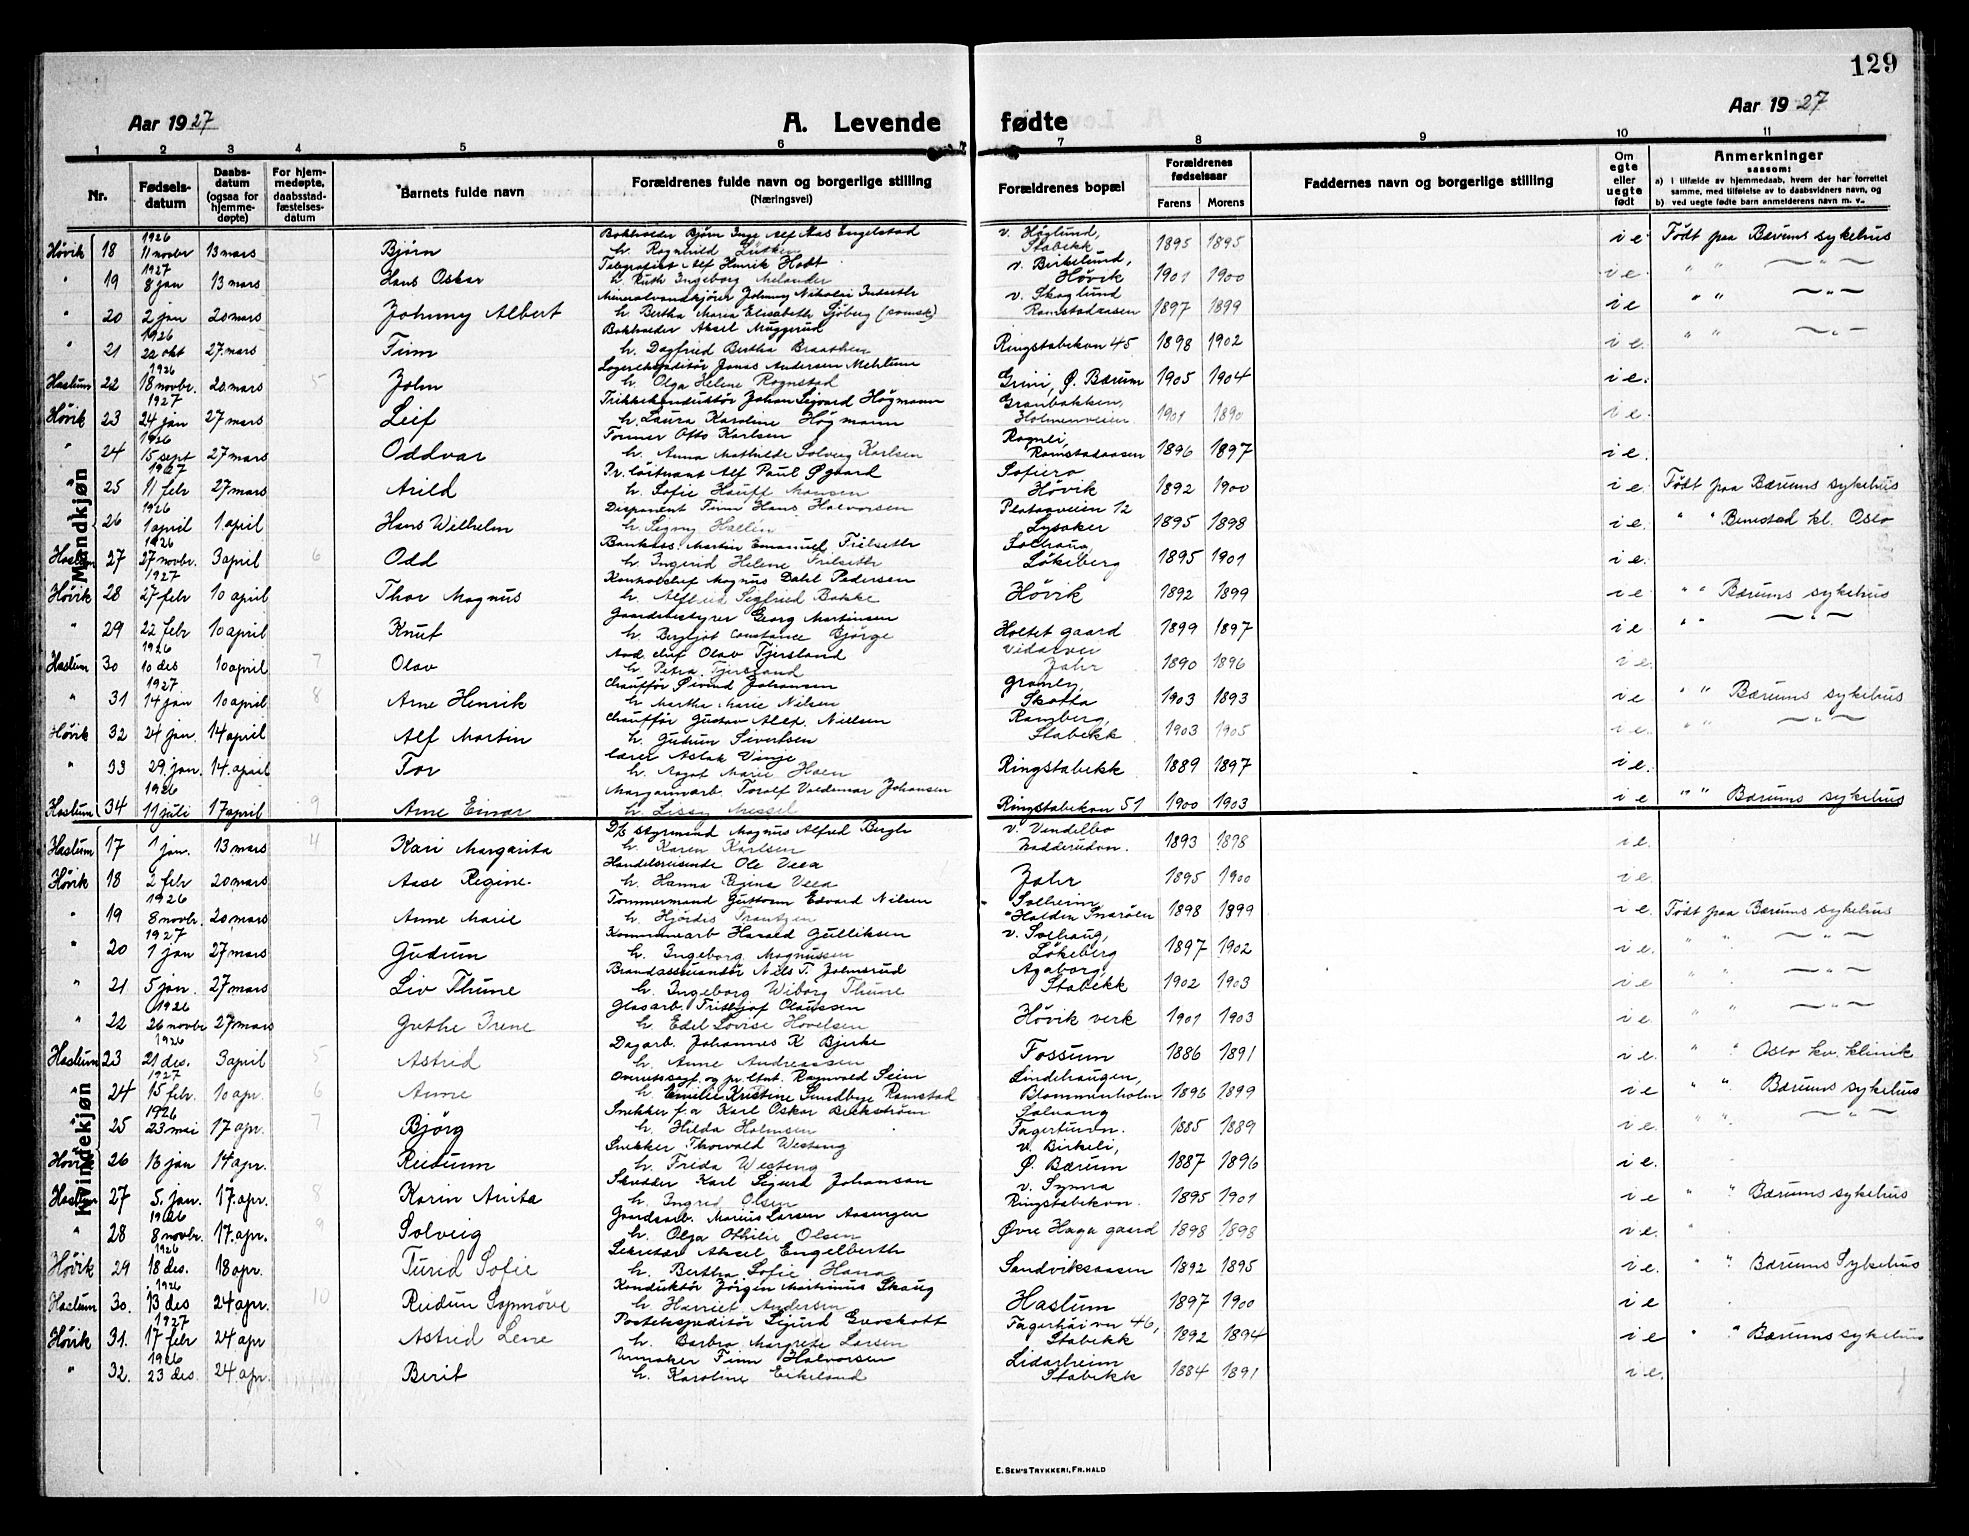 129
Aar 1927
A. Levende
fødte
Aar 1927
1 2 3 4 5 6 7 8 9 10 11
Nr.
Fødsels-
datum
Daabs-
datum
(ogsaa for
hjemme-
døpte)
For hjem-
medøpte,
daabsstad-
fæstelses-
datum
Barnets fulde navn
Forældrenes fulde navn og borgerlige stilling
(Næringsvei)
Forældrenes bopæl
Forældrenes
fødselsaar
Farens Morens
Faddernes navn og borgerlige stilling
Om
egte
eller
uegte
født
Anmerkninger
saasom:
a) i tilfælde av hjemmedaab, hvem der har forrettet
samme, med tilføielse av to daabsvidners navn, og
b) ved uegte fødte barn anmelderens navn m. v..
Mandkjøn
Høvik 18 1926 11 novbr 13 mars Bjørn Bokholder Bjørn Inge Alf Aas Engelstad v. Høglund, Stabekk 1895 1895 i e Født paa Bærums sykehus
h. Ragnhild
" 19 1927 8 jan 13 mars Hans Oskar Telegrafist Alf Henrik Hodt v. Birkelund, Høvik 1901 1900 i e. " " — " —
h. Ruth Ingeborg Melander
" 20 2 jan 20 mars Johnny Albert Mineralvandkjører Johnny Nikolai v. Skoglund Ramstadaasen 1897 1899 i e " " — " —
h. Bertha Maria Elisabeth Sjøberg (svensk)
" 21 1926 22 okt 27. mars Finn Bokholder Aksel Muggerud Ringstabekvn 45 1898 1902 i e. " " — " —
h. Dagfried Bertha Braathen
Haslum 22 1926 18 novbr. 20. mars 5 John Jonas Andersen Mehlum Grini, Ø. Bærum 1905 1904 i e.
h. Olga Helene Rognstad
Høvik 23 1927 24 jan 27 mars Leif Trikkekonduktør Johan Sigvard Högmann Granbakken, Holmenveien 1901 1890 i e.
h. Laura Karoline Högmann
" 24 1926 15 sept 27 mars Oddvar Former Otto Karlsen Ramstadaasen 1896 1897 i e.
h. Anna Mathilde Solveig Karlsen
" 25 1927 11 febr 27 mars Arild Pr. løitnant Alf Paul Øgaard Sofiero Høvik 1892 1900 i e. Født paa Bærums sykehus
h. Sofie Hauff Monsen
" 26 1926 1 april 1. april Hans Wilhelm Disponent Finn Hans Halvorsen Platouveien 12 Lysaker 1895 1898 i e " " kl. Oslo
h. Signy
Haslum 27 1926 27 novbr. 3 april 6 Odd Bankass. Martin Emanuel Trelseth Solhaug, Løkeberg 1895 1901 i e.
h. Ingerid Helene Trelseth
Høvik 28 1927 27 febr 10 april Thor Magnus Kontorchef Magnus Dahl Pedersen Høvik 1892 1899 i e " " Bærums sykehus
h. Alfhild Sigfried Bakke
" 29 22 febr 10 april Knut Gaardsbestyrer Georg Martinsen Holtet gaard 1899 1897 i e " " — " —
h. Bergljot Constance Bjørge
Haslum 30 1926 10 des 10 april 7 Olav Avd. chef Olav Tjersland Jahr 1890 1896 i e.
h. Petra Tjersland
" 31 1927 14 jan 10 april 8 Arne Henrik Chauffør Øivind Johansen Skotta 1903 1893 i e " " Bærums sykehus
h. Martha Marie Nilsen
Høvik 32 24 jan. 14 april Alf Martin Chauffør Gustav Alf. Nielsen Ramberg, Stabekk 1903 1905 i e " " — " —
h. Gudrun Sivertsen
" 33 29. jan. 14. april Tor Lærer Aslak Vinje Ringstabekk 1889 1897 i e.
h. Aagot Marie Hoen
Haslum 34 1926 11 juli 17 april 9 Arne Einar Margarinarb. Toralf Valdemar Johansen Ringstabekvn 51 1900 1903 i e " " Bærums sykehus
h. Lissy Messel
Kvindekjøn
Haslum 17 1 jan. 13 mars 4 Kari Margarita D/S styrmand Magnus Alfred Bergh v. Vendelbo Nadderudvn. 1893 1898 i e.
h. Karen Karlsen
Høvik 18 2 febr 20 mars Aase Regine. Handelsreisende Ole Veea Jahr 1895 1900 i e.
h. Hanna Regine Veea
" 19 1926 8 novbr. 20 mars Anne Marie Tømmermand Guttorm Edvard Nilsen Solheim Halden Snarøen 1898 1899 i e. Født paa Bærums sykehus
h. Hjördis Frantzen
" 20 1927 1 jan 27 mars Gudrun Kommunearb Harald Gulliksen v. Solhaug, Løkeberg 1897 1902 i e. " " — " —
h. Ingeborg Magnussen
" 21 5 jan. 27 mars Liv Thune Brandassurandør Nils T. Johnsrud Stabekk 1902 1903 i e " " — " —
h. Ingeborg Wiborg Thune
" 22 1926 26 novbr 27 mars Grethe Irene Glasarb. Frithjof Olaussen Høvik verk 1901 1903 i e. " " — " —
h. Edel Lovise Hovelsen
Haslum 23 1926 21 des. 3 april 5 Astrid Dagarb. Johannes K Bjerke Fossum 1886 1891 i e. " " Oslo kv. klinik
h. Anne Andreassen
" 24 1927 15 febr. 10 apr. 6 Anne Overretssagf. og pr. ltnt. Ragnvald Seim Lindehaugen, Blommenholm 1896 1899 i e " " Bærums sykehus
h. Emilie Kristine Sundbye Ramstad
" 25 1926 23 mai 17 apr. 7 Bjørg Snekker f.a Karl Oskar Beckström Solvang Fagertunvn. 1885 1889 i e. " " — " —
h. Hilda Holmsen
Høvik 26 13 jan 14 apr. Reidunn Snekker Thorvald Westeng v. Birkeli, Ø. Bærum 1887 1896 i e.
h. Frida Westeng
Haslum 27 5. jan. 17. apr. 8 Karin Anita Skrædder Karl Sigurd Johanson v. Symra Ringstabekvn. 1895 1901 i e " " Bærums sykehus
h. Ingrid Olsen
" 28 1926 8 novbr. 17. apr. 9 Solveig Gaardsarb. Marius Larsen Aasengen Øvre Haga gaard 1898 1898 i e.
h. Olga Othilie Olsen
Høvik 29 1926 18 des. 18 apr. Turid Sofie Sekretær Aksel Engelberth Sandviksaasen 1892 1895 i e. " " Bærums Sykehus
h. Bertha Sofie Hana
Haslum 30. 1926 13 des 24 apr. 10 Reidun Synnöve Konduktør Jörgen Mathinius Skaug Haslum 1897 1900 i e
h. Harriet Andersen
Høvik 31. 1927 17 febr 24 apr Astrid Lene Postekspeditør Sigurd Evoskott Fagerhøivn 46, Stabekk 1892 1894 i e " " Bærums sykehus
h. Barbra Margrete Larsen
" 32. 1926 23 des. 24. apr. Berit Urmaker Finn Halvorsen Lidarheim Stabekk 1884 1891 i e.
h. Karoline Eikeland
E. SEM'S TRYKKERI, FR.HALD